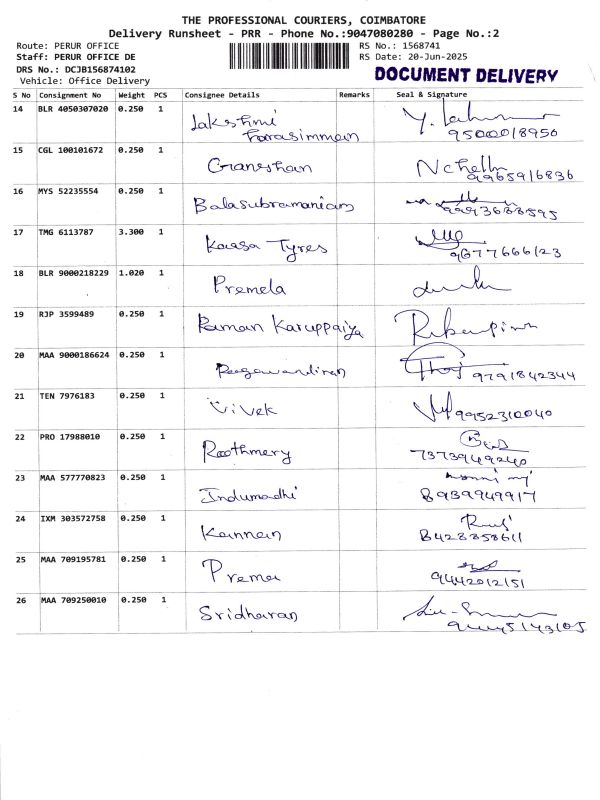 THE PROFESSIONAL COURIERS, COIMBATORE
Delivery Runsheet - PRR - Phone No.:9047080280 - Page No.:2
Route: PERUR OFFICE RS No.: 1568741
Staff: PERUR OFFICE DE RS Date: 20-Jun-2025
DRS No.: DCJB156874102 DOCUMENT DELIVERY
Vehicle: Office Delivery
S No Consignment No Weight PCS Consignee Details Remarks Seal & Signature
14 BLR 4050307020 0.250 1 Lakshmi
Narasimman 9500018950
15 CGL 100101672 0.250 1 Ganeshan
9965916836
16 MYS 52235554 0.250 1 Balasubramaniam
9993688595
17 TMG 6113787 3.300 1 Kaasa Tyres
9677666123
18 BLR 9000218229 1.020 1 Premela
19 RJP 3599489 0.250 1 Raman Karuppaiya
20 MAA 9000186624 0.250 1
9791842344
21 TEN 7976183 0.250 1 Vivek 9952310040
22 PRO 17988010 0.250 1 Roothmery
7373949240
23 MAA 577770823 0.250 1 Indumadhi
8939949917
24 IXM 303572758 0.250 1 Kannan
8428358611
25 MAA 709195781 0.250 1 Prema
9442012151
26 MAA 709250010 0.250 1 Sridharan